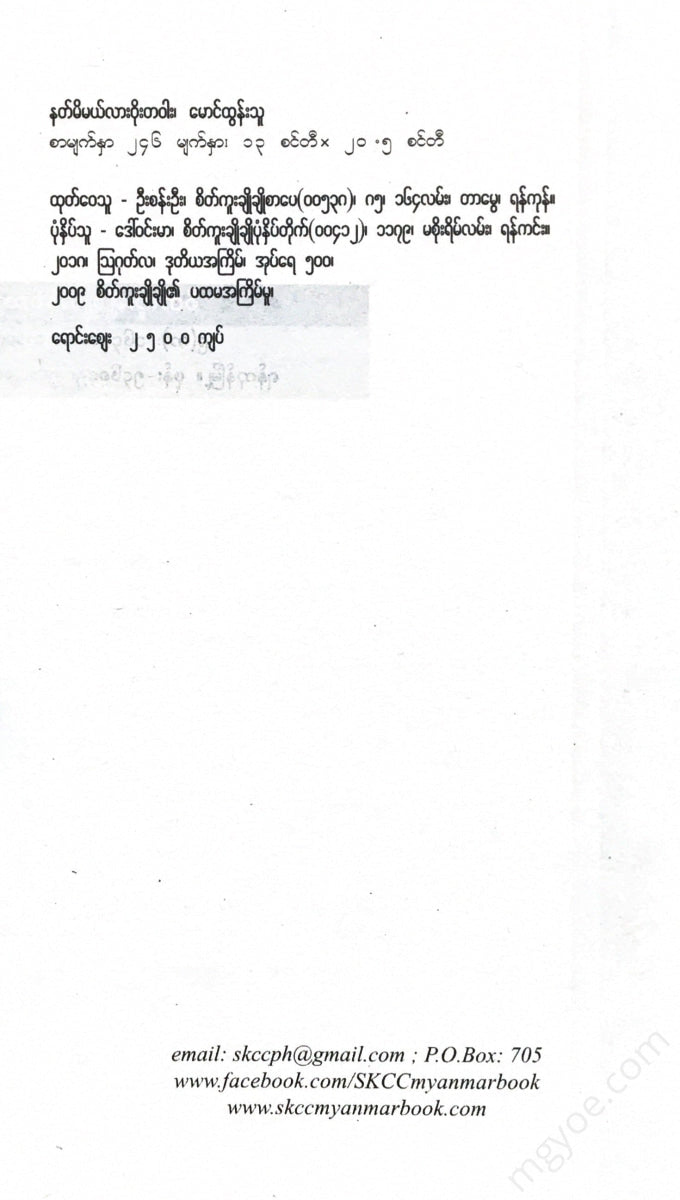 နတ်မိမယ်လားဝိုးတဝါး၊ မောင်ထွန်းသူ
စာမျက်နှာ ၂၄၆ မျက်နှာ၊ ၁၃ စင်တီ× ၂၀ .၅ စင်တီ
ထုတ်ဝေသူ - ဦးစန်းဦး၊ စိတ်ကူးချိုချိုစာပေ(၀၀၅၃၈)၊ ဂ၅၊ ၁၆၄လမ်း၊ တာမွေ၊ ရန်ကုန်။
ပုံနှိပ်သူ - ဒေါ်ဝင်းမာ၊ စိတ်ကူးချိုချိုပုံနှိပ်တိုက်(၀၀၄၁၂)၊ ၁၁၇၉၊ မစိုးရိမ်လမ်း၊ ရန်ကင်း။
၂၀၁၈၊ ဩဂုတ်လ၊ ဒုတိယအကြိမ်၊ အုပ်ရေ ၅၀၀၊
၂၀၀၉ စိတ်ကူးချိုချို၏ ပထမအကြိမ်မူ၊
ရောင်းဈေး ၂ ၅ ၀ ၀ ကျပ်
email: skccph@gmail.com ; P.O.Box: 705
www.facebook.com/SKCCmyanmarbook
www.skccmyanmarbook.com
mgyoe.com